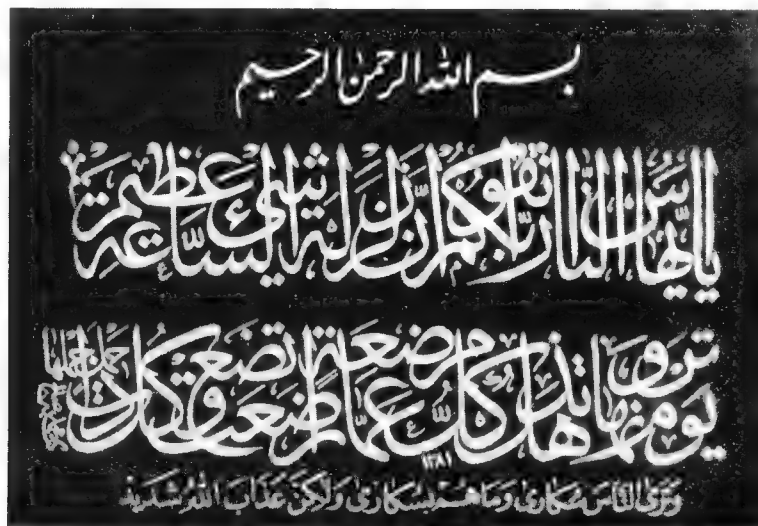 بسم الله الرحمن الرحيم
يا ايها الناس اتقوا ربكم ان زلزلة الساعة شيئ عظيم
يوم ترونها تذهل كل مرضعة عما ارضعت وتضع كل ذات حمل حملها
١٣٨١
وترى الناس سكارى وما هم بسكارى ولكن عذاب الله شديد